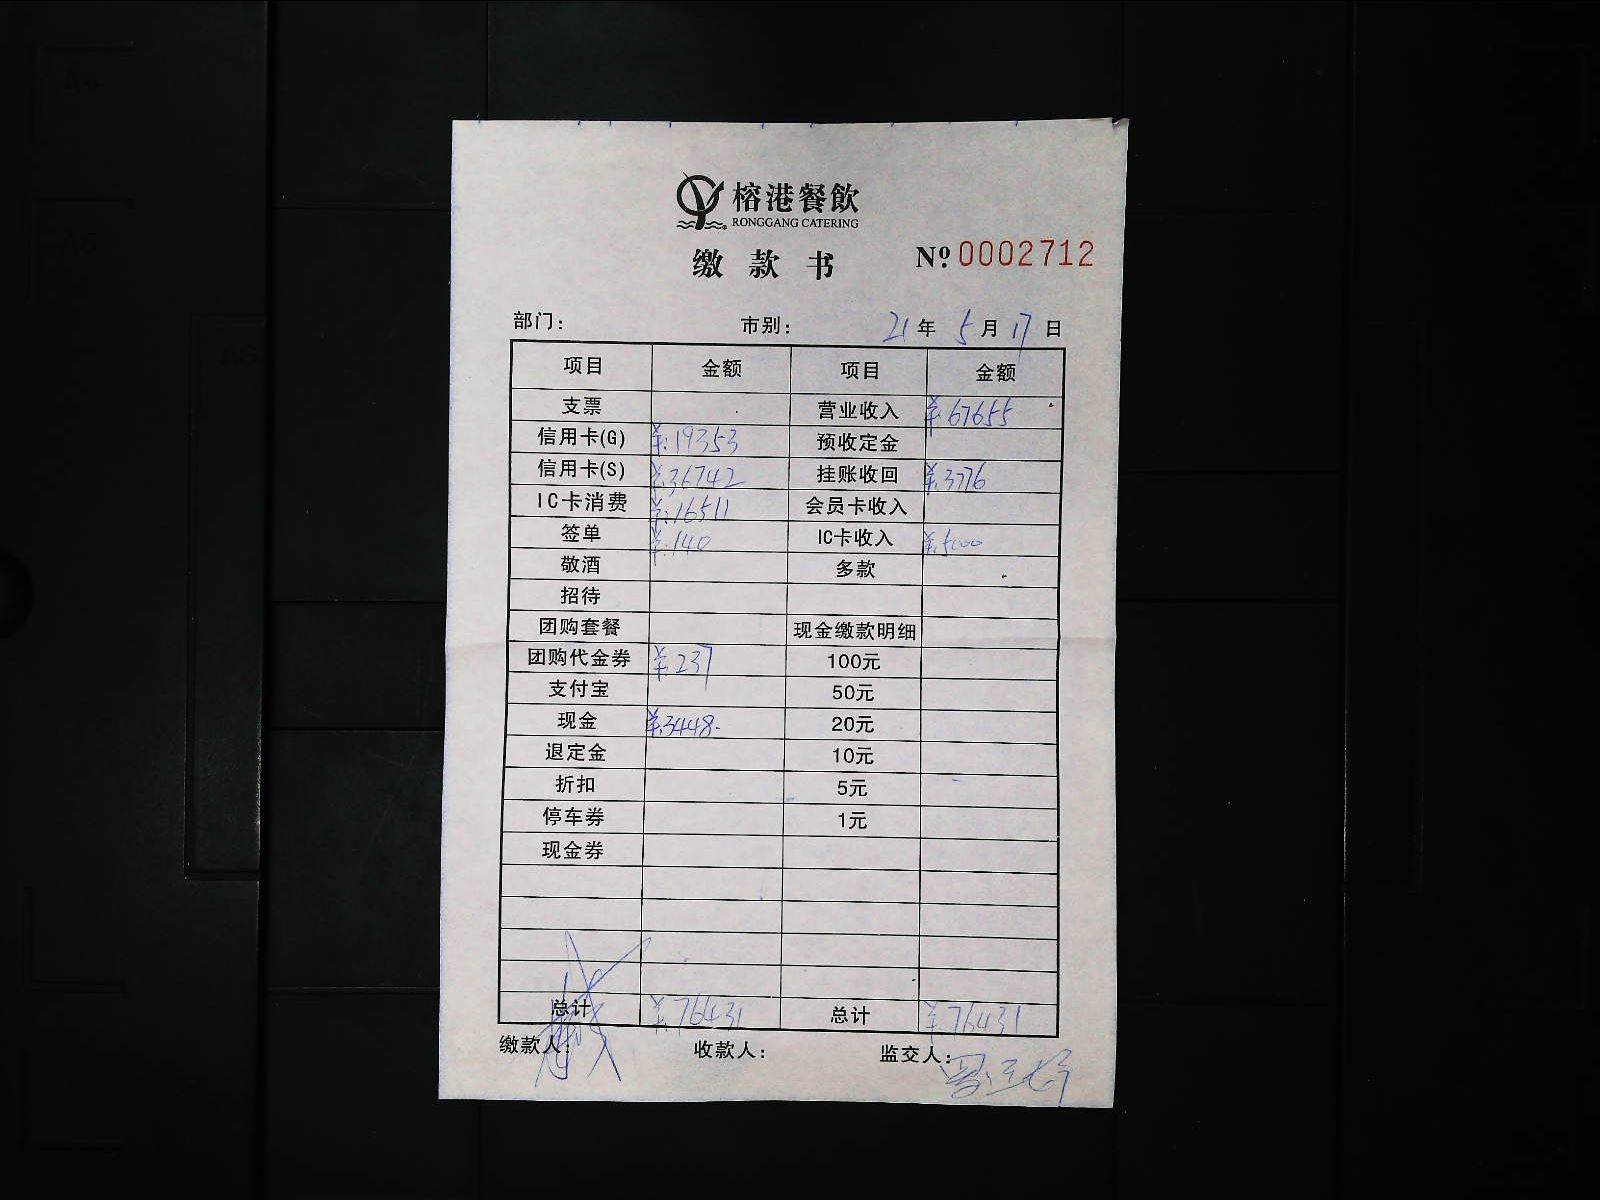 榕港餐飲
RONGGANG CATERING
缴款书 Nº 0002712
部门： 市别： 21年 5月 17日
项目 金额 项目 金额
支票 营业收入 ¥:67655
信用卡(G) ¥:19353 预收定金
信用卡(S) ¥:36742 挂账收回 ¥:3776
IC卡消费 ¥:16511 会员卡收入
签单 ¥:140 IC卡收入 ¥:5000
敬酒 多款
招待
团购套餐 现金缴款明细
团购代金券 ¥:237 100元
支付宝 50元
现金 ¥:3448- 20元
退定金 10元
折扣 5元
停车券 1元
现金券
总计 ¥:76431 总计 ¥:76431
缴款人： 收款人： 监交人：